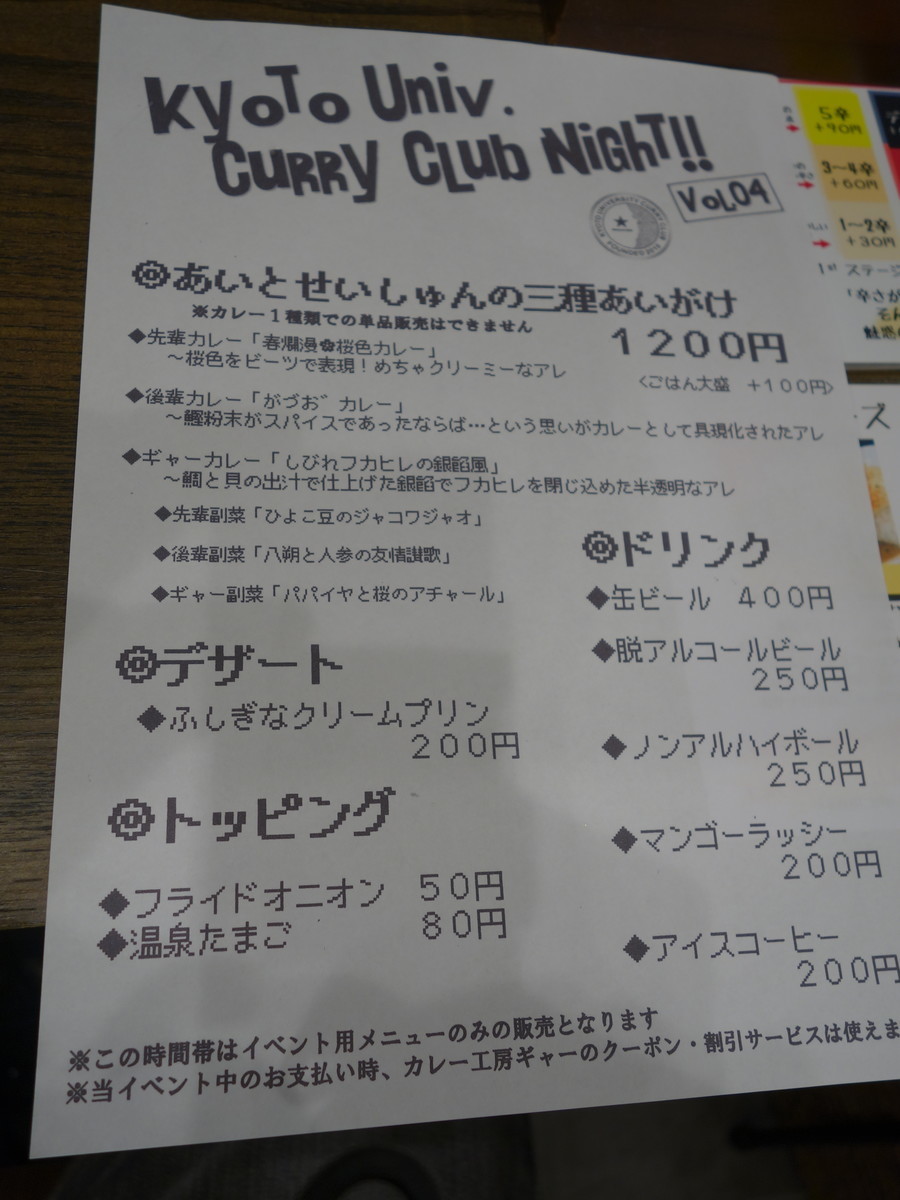 Kyoto Univ.
Curry Club Night!!
Vol.04
KYOTO UNIVERSITY CURRY CLUB
◎あいとせいしゅんの三種あいがけ
※カレー1種類での単品販売はできません
1200円
<ごはん大盛 +100円>
◆先輩カレー「春爛漫✿桜色カレー」
～桜色をビーツで表現！めちゃクリーミーなアレ
◆後輩カレー「がづお゛カレー」
～鰹粉末がスパイスであったならば…という思いがカレーとして具現化されたアレ
◆ギャーカレー「しびれフカヒレの銀餡風」
～鯛と貝の出汁で仕上げた銀餡でフカヒレを閉じ込めた半透明なアレ
◆先輩副菜「ひよこ豆のジャコワジャオ」
◆後輩副菜「八朔と人参の友情讃歌」
◆ギャー副菜「パパイヤと桜のアチャール」
◎デザート
◆ふしぎなクリームプリン
200円
◎トッピング
◆フライドオニオン 50円
◆温泉たまご 80円
◎ドリンク
◆缶ビール 400円
◆脱アルコールビール
250円
◆ノンアルハイボール
250円
◆マンゴーラッシー
200円
◆アイスコーヒー
200円
※この時間帯はイベント用メニューのみの販売となります
※当イベント中のお支払い時、カレー工房ギャーのクーポン・割引サービスは使えま
5辛
+90円
3～4辛
+60円
1～2辛
+30円
1st ステージ
「辛さが
ズ